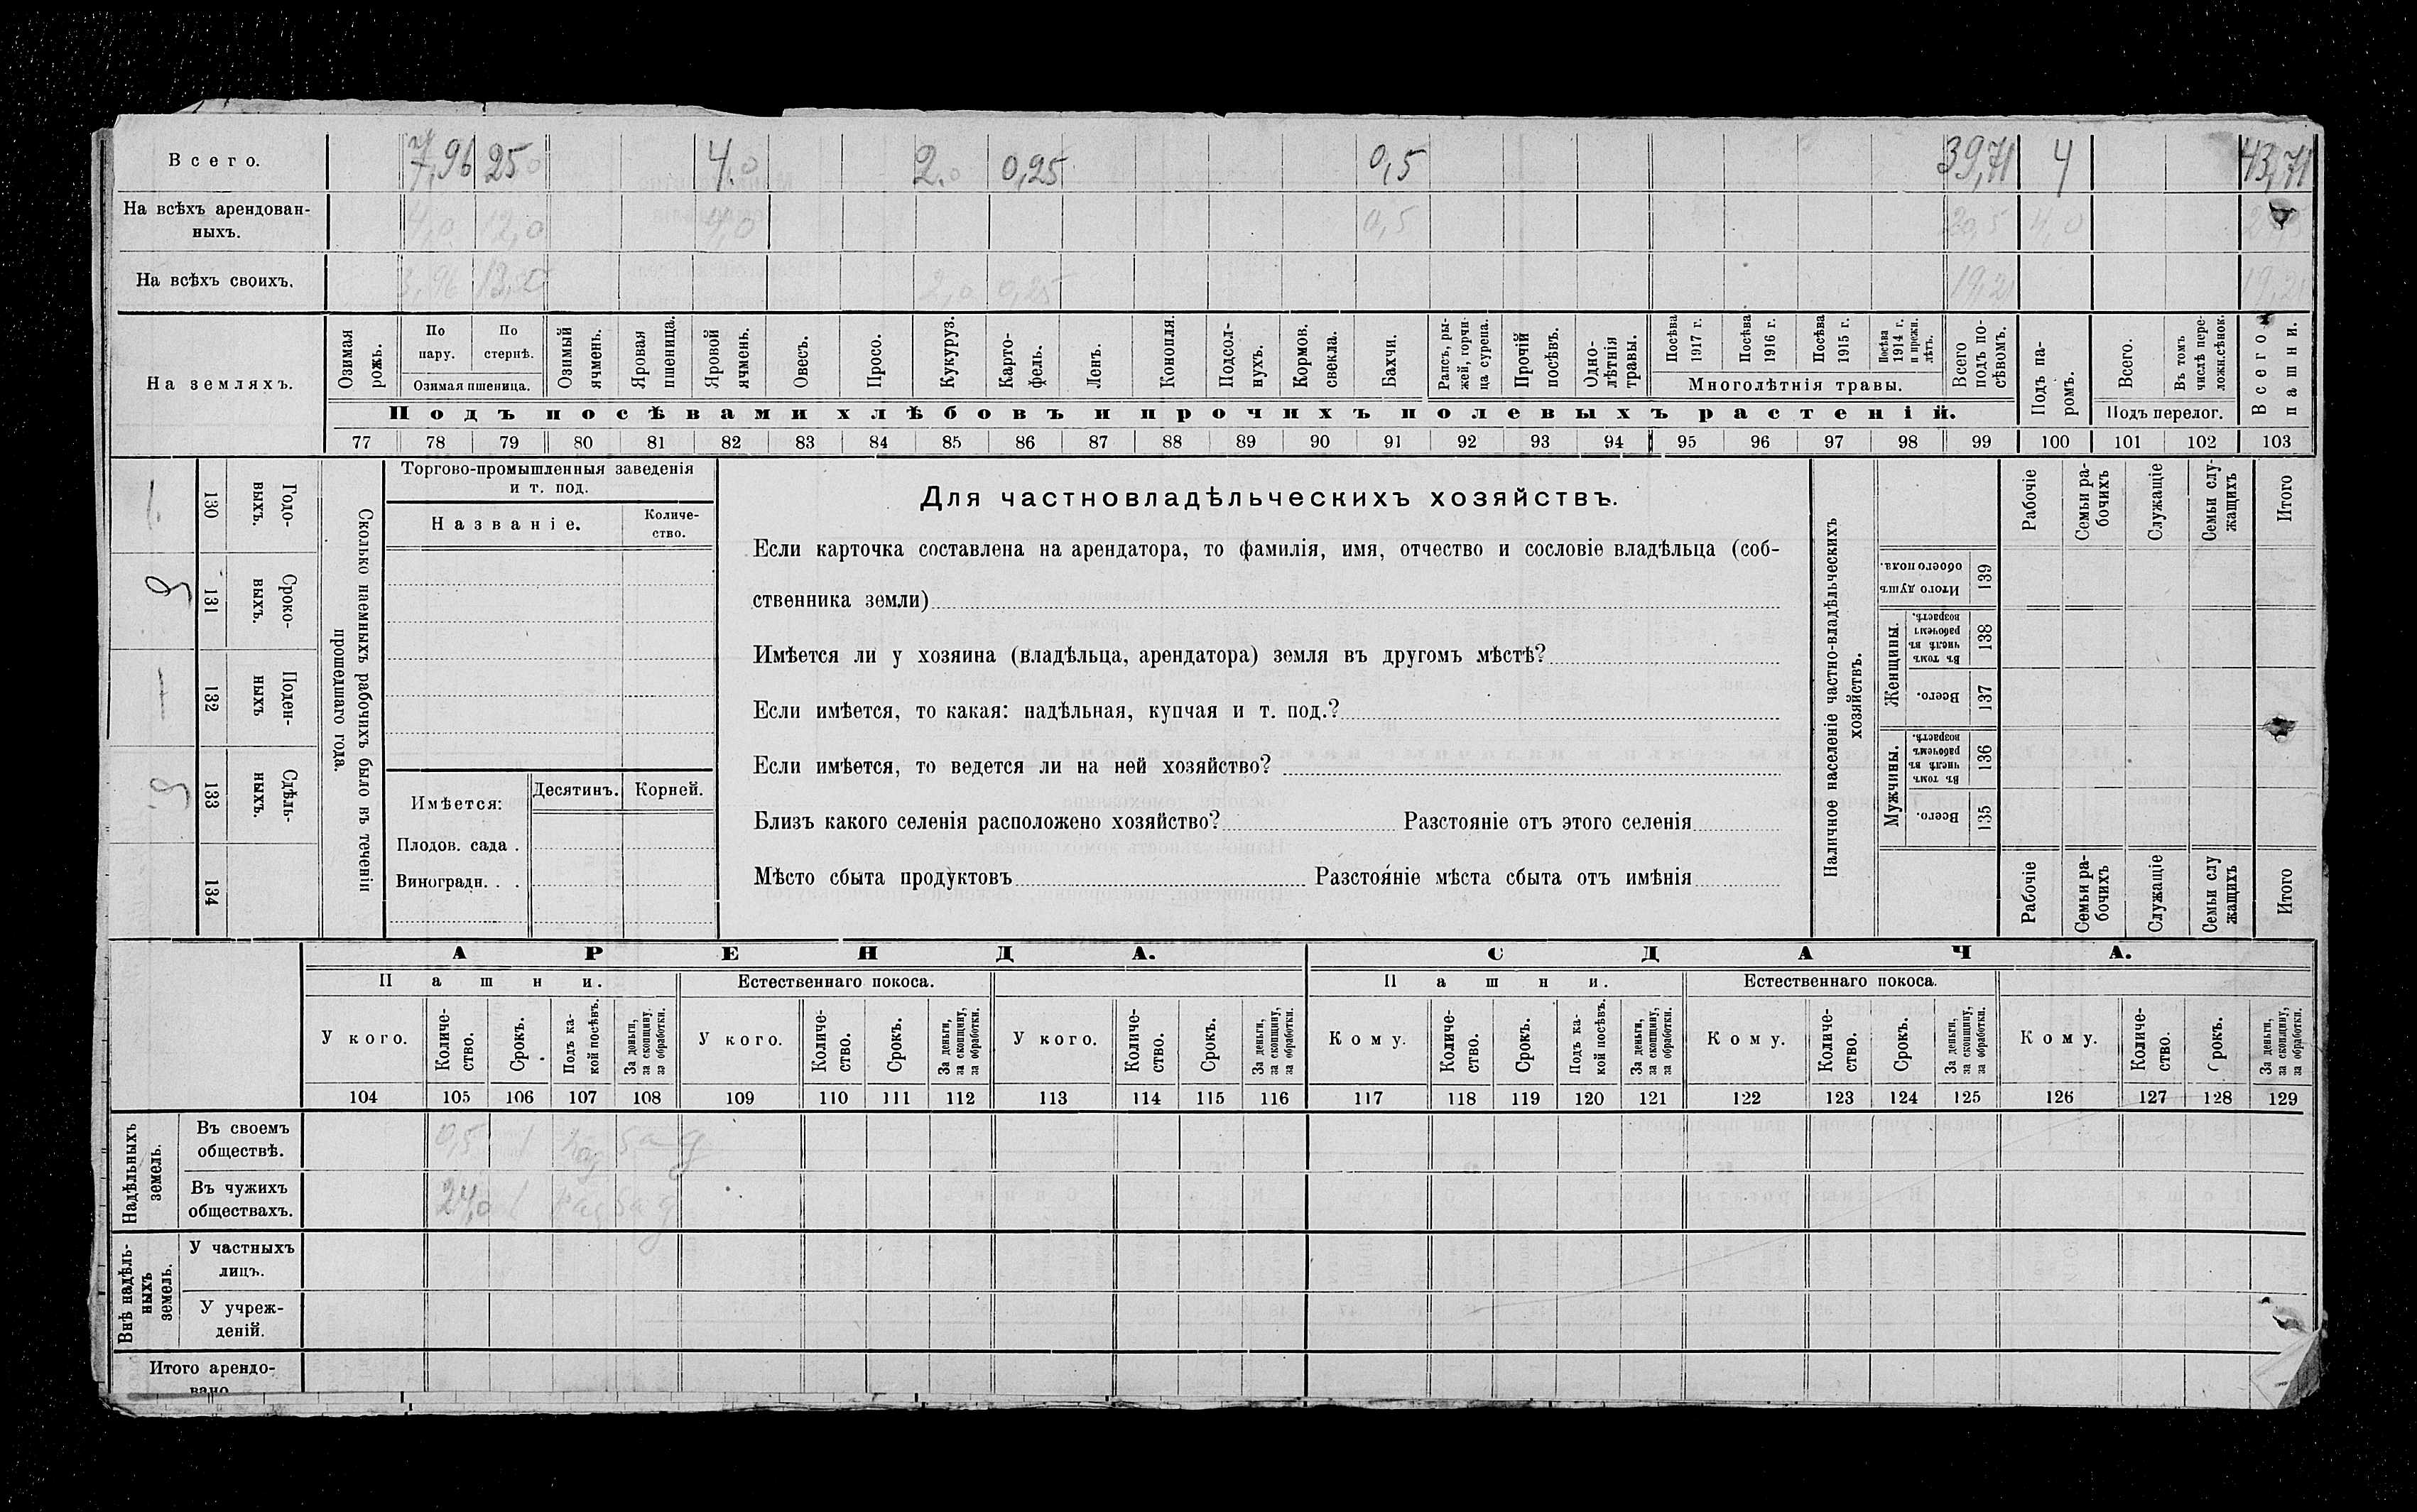 Всего. 7,96 25.0 4.0 2.0 0,25 0,5 39,71 4 43,71
На всѣхъ арендован-
ныхъ. 4,0 12,0 4,0 0,5 20,5 4,0
На всѣхъ своихъ. 3,96 2,0 0,25 19,21 19,21
На земляхъ.
Озимая рожь.
По пару.
По стернѣ.
Озимая пшеница.
Озимый ячмень.
Яровая пшеница.
Яровой ячмень.
Овесъ.
Просо.
Кукуруз.
Карто-
фель.
Ленъ.
Конопля.
Подсол-
нухъ.
Кормов. свекла.
Бахчи.
Рапсъ, ры-
жей, горчи-
ца сурепа.
Прочій посѣвъ.
Одно-
лѣтнія травы.
Посѣва 1917 г.
Посѣва 1916 г.
Посѣва 1915 г.
Посѣва 1914 г. и прежн. лѣтъ.
Многолѣтнія травы.
Всего подъ по-
сѣвомъ.
Подъ па-
ромъ.
Всего.
Въ томъ числѣ пере-
ложн.сѣнок.
Подъ перелог.
Всего пашни.
Подъ посѣвами хлѣбовъ и прочихъ полевыхъ растеній.
77 78 79 80 81 82 83 84 85 86 87 88 89 90 91 92 93 94 95 96 97 98 99 100 101 102 103
Сколько наемныхъ рабочихъ было въ теченіи
прошедшаго года.
Годо-
выхъ.
130
1.
Сроко-
выхъ.
131
Поден-
ныхъ
132
Сдѣль-
ныхъ.
133
134
Торгово-промышленныя заведенія
и т. под.
Названіе.
Количе-
ство.
Имѣется:
Десятинъ.
Корней.
Плодов. сада .
Виноградн. . .
Для частновладѣльческихъ хозяйствъ.
Если карточка составлена на арендатора, то фамилія, имя, отчество и сословіе владѣльца (соб-
ственника земли)
Имѣется ли у хозяина (владѣльца, арендатора) земля въ другомъ мѣстѣ?
Если имѣется, то какая: надѣльная, купчая и т. под.?
Если имѣется, то ведется ли на ней хозяйство?
Близъ какого селенія расположено хозяйство? Разстояніе отъ этого селенія
Мѣсто сбыта продуктовъ Разстояніе мѣста сбыта отъ имѣнія
Наличное населеніе частно-владѣльческихъ
хозяйствъ.
Рабочіе
Семьи ра-
бочихъ
Служащіе
Семьи слу-
жащихъ
Итого
Итого душъ обоего пола.
139
Женщины.
Въ томъ числѣ въ рабочемъ возрастѣ.
138
Всего.
137
Мужчины.
Въ томъ числѣ въ рабочемъ возрастѣ.
136
Всего.
135
Рабочіе
Семьи ра-
бочихъ
Служащіе
Семьи слу
жащихъ
Итого
АРЕНДА.
СДАЧА.
Пашни.
Естественнаго покоса.
Пашни.
Естественнаго покоса.
У кого.
Количе-
ство.
Срокъ.
Подъ ка-
кой посѣвъ.
За деньги, за скопщину, за обработки.
У кого.
Количе-
ство.
Срокъ.
За деньги, за скопщину, за обработки.
У кого.
Количе-
ство.
Срокъ.
За деньги, за скопщину, за обработки.
Кому.
Количе-
ство.
Срокъ.
Подъ ка-
кой посѣвъ.
За деньги, за скопщину, за обработки.
Кому.
Количе-
ство.
Срокъ.
За деньги, за скопщину, за обработки.
Кому.
Количе-
ство.
Срокъ.
За деньги, за скопщину, за обработки.
104 105 106 107 108 109 110 111 112 113 114 115 116 117 118 119 120 121 122 123 124 125 126 127 128 129
Надѣльныхъ
земель.
Въ своемъ
обществѣ. 0,5 1
Въ чужихъ
обществахъ. 24,0 1
Внѣ надѣль-
ныхъ
земель.
У частныхъ
лицъ.
У учреж-
деній.
Итого арендо-
вано